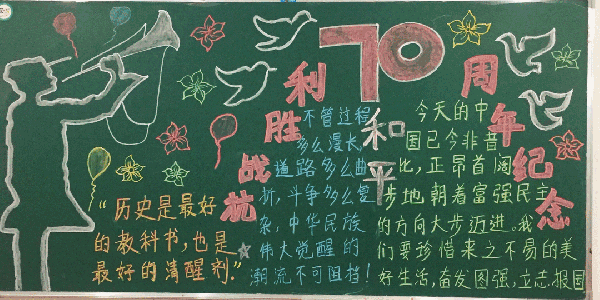 抗战胜利
70
周年纪念
和平
“历史是最好
的教科书，也是
最好的清醒剂”
不管过程
多么漫长，
道路多么曲
折，斗争多么复
杂，中华民族
伟大觉醒的
潮流不可阻挡！
今天的中
国已今非昔
比，正昂首阔
步地朝着富强民主
的方向大步迈进。我
们要珍惜来之不易的美
好生活，奋发图强，立志报国